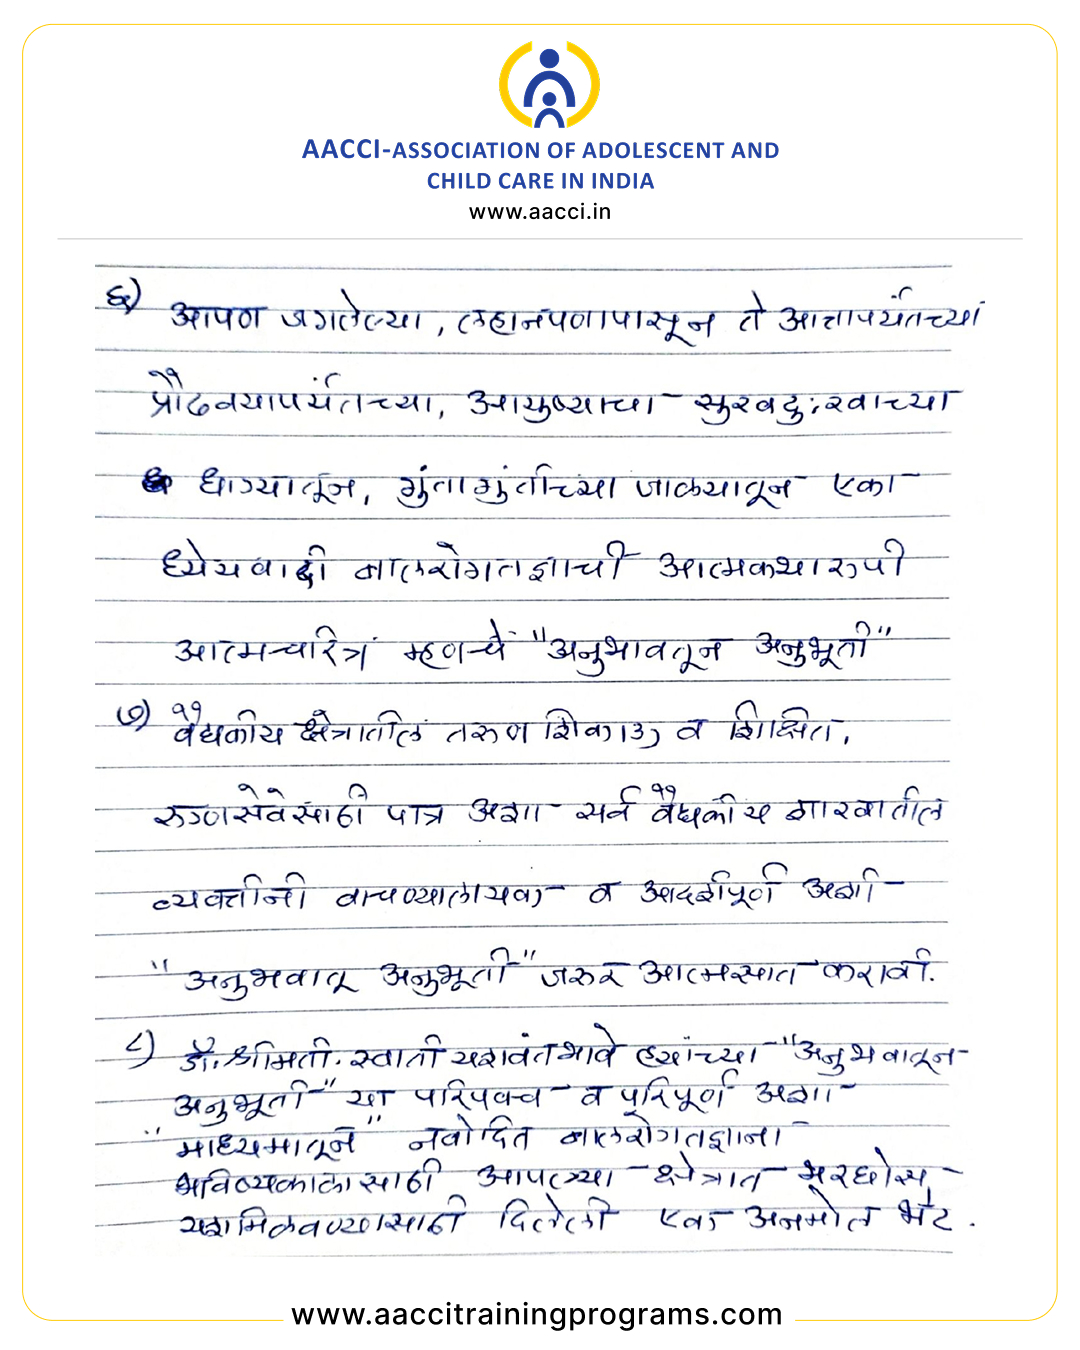 AACCI-ASSOCIATION OF ADOLESCENT AND
CHILD CARE IN INDIA
www.aacci.in
६) आपण जगलेल्या, लहानपणापासून ते आत्तापर्यंतच्या
प्रौढवयापर्यंतच्या, आयुष्याचा सुखदुःखाच्या
धाग्यातून, गुंतागुंतीच्या जाळ्यातून एका
ध्येयवादी बालरोगतज्ञाची आत्मकथारुपी
आत्मचरित्र म्हणचे "अनुभावतून अनुभूती"
७) वैद्यकीय क्षेत्रातील तरुण शिकाऊ व शिक्षित,
रुग्णसेवेसाठी पात्र अशा सर्व वैद्यकीय शाखातील
व्यक्तींनी वाचण्यालायक व आदर्शपूर्ण अशी
"अनुभवातू अनुभूती" जरुर आत्मसात करावी.
८) डॉ. श्रीमती. स्वाती यशवंत भावे ह्यांच्या "अनुभवातून
अनुभूती" या परिपक्व व परिपूर्ण अशा
"माध्यमातून" नवोदित बालरोगतज्ञाना
भविष्यकाळासाठी आपल्या क्षेत्रात भरघोस
यश मिळवण्यासाठी दिलेली एक अनमोल भेट.
www.aaccitrainingprograms.com